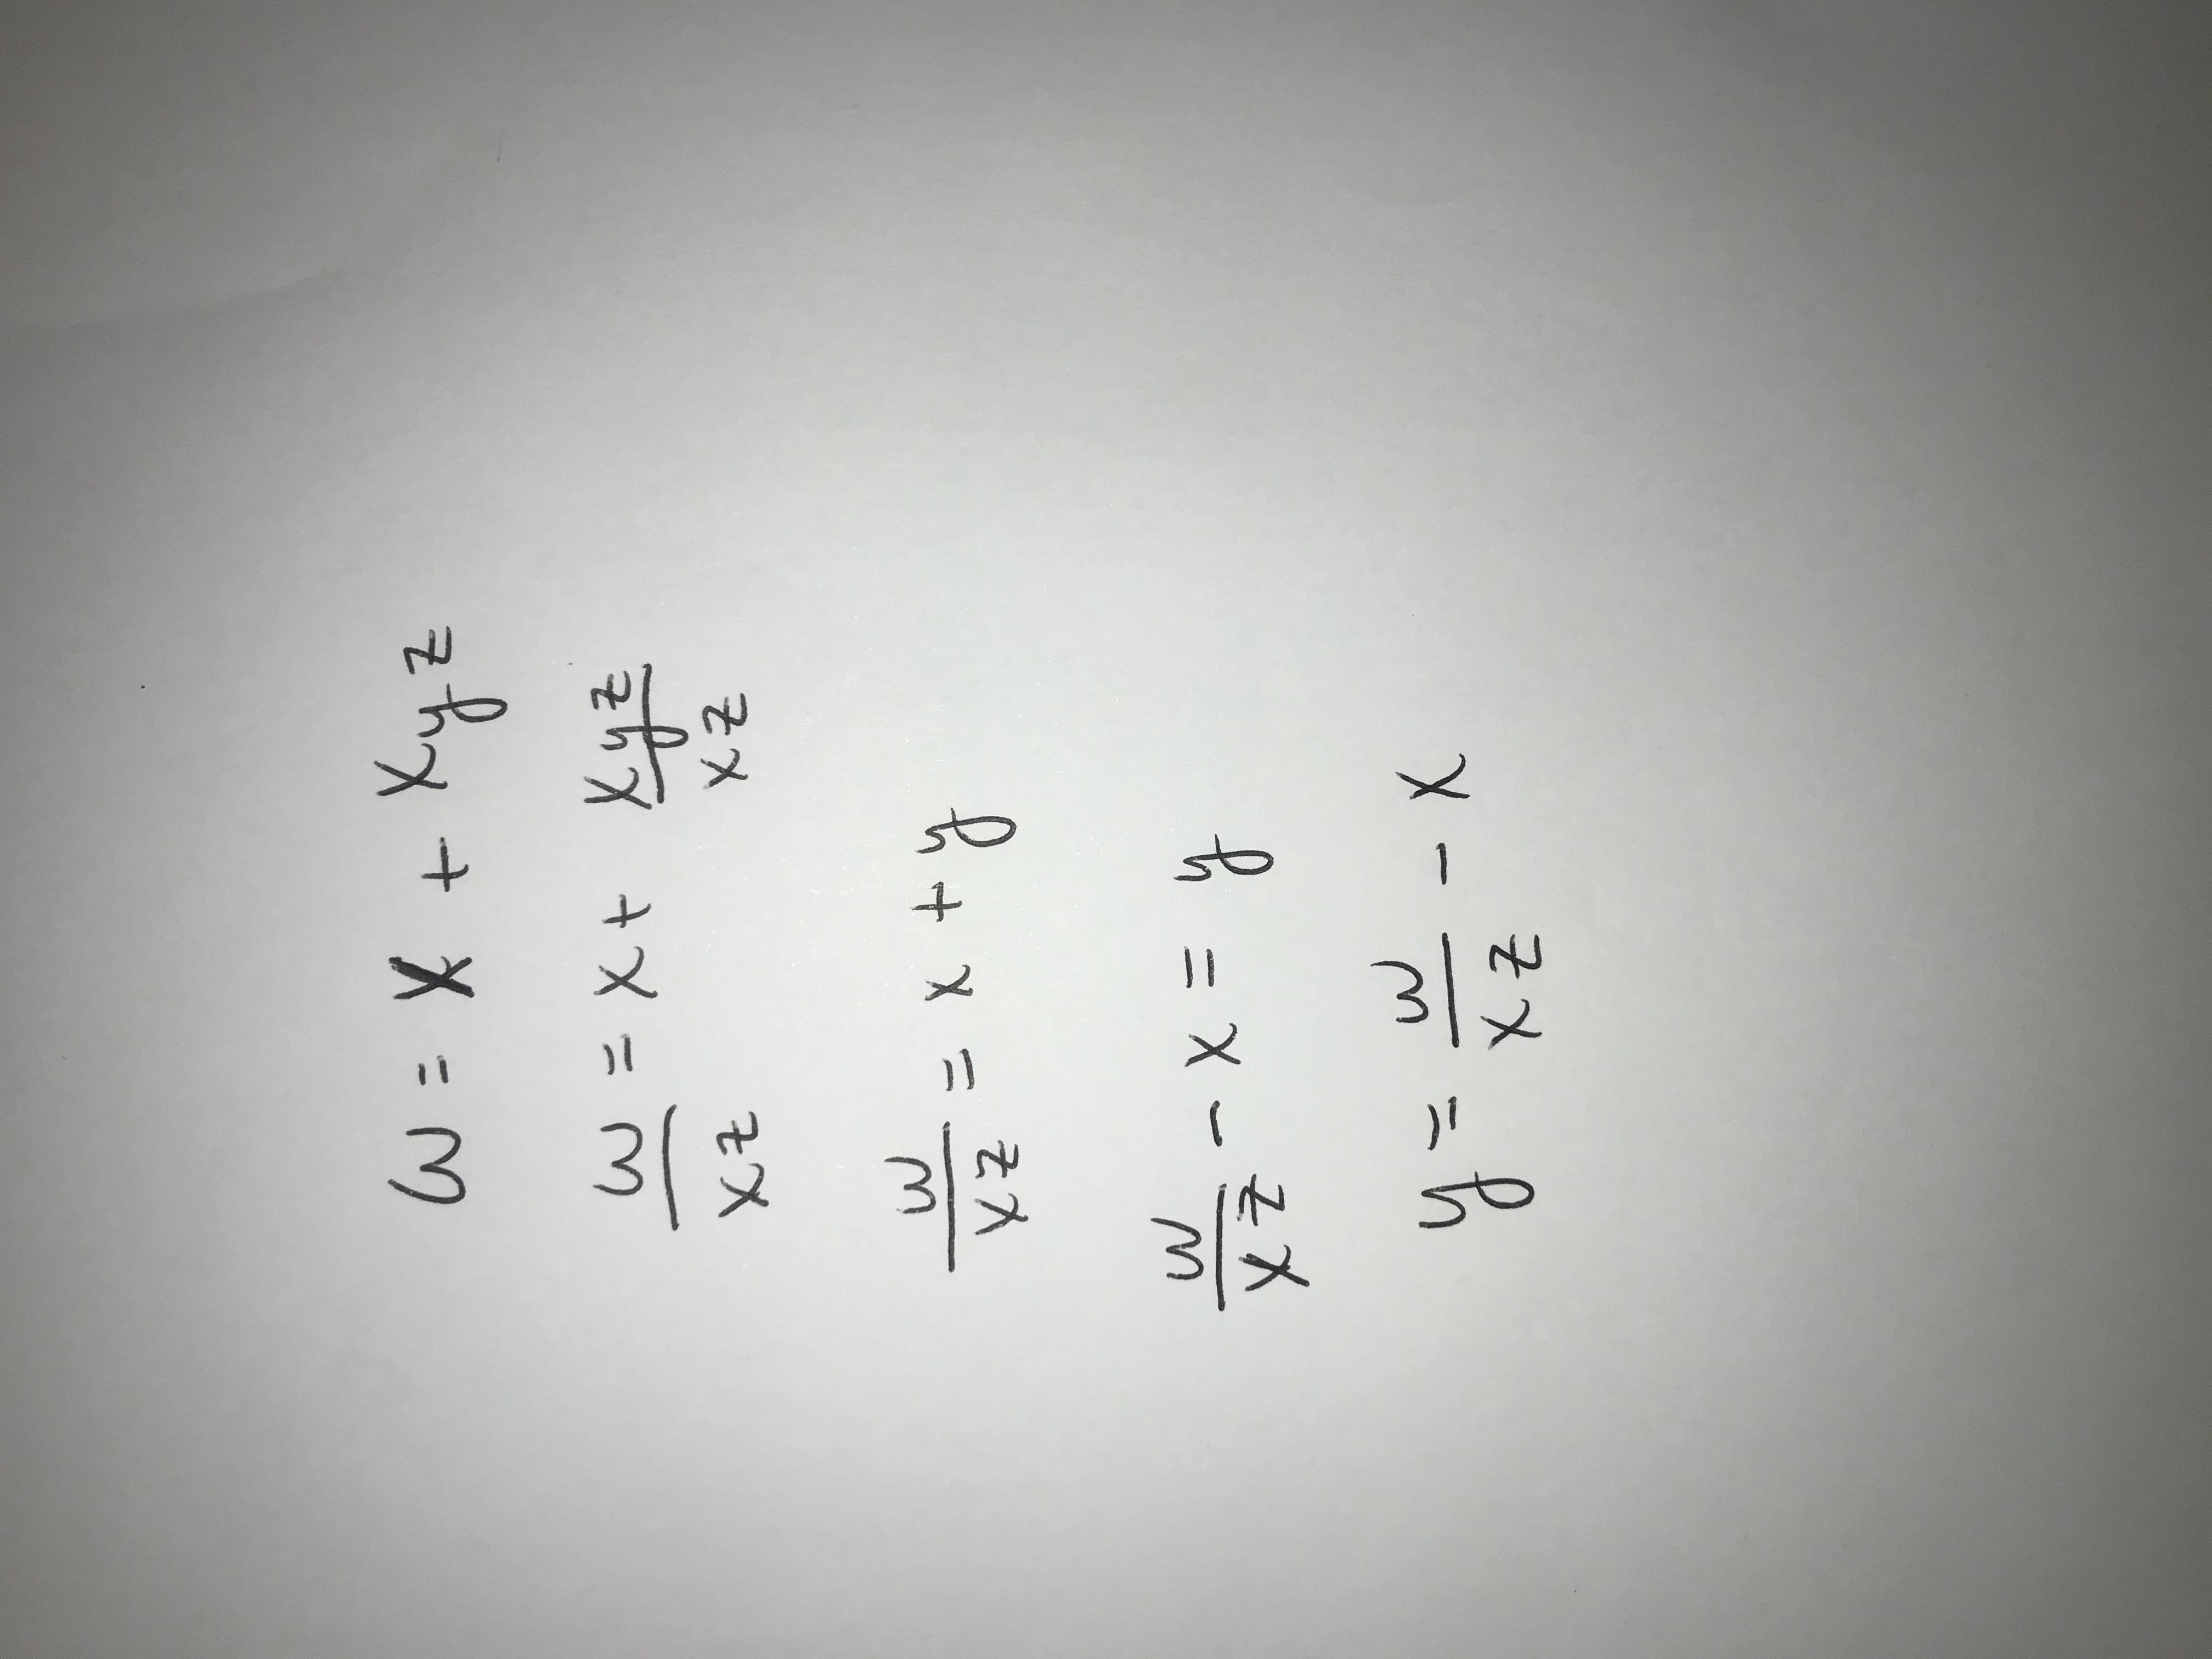 w = x + xyz
w/xz = x + xyz/xz
w/xz = x + y
w/xz - x = y
y = w/xz - x